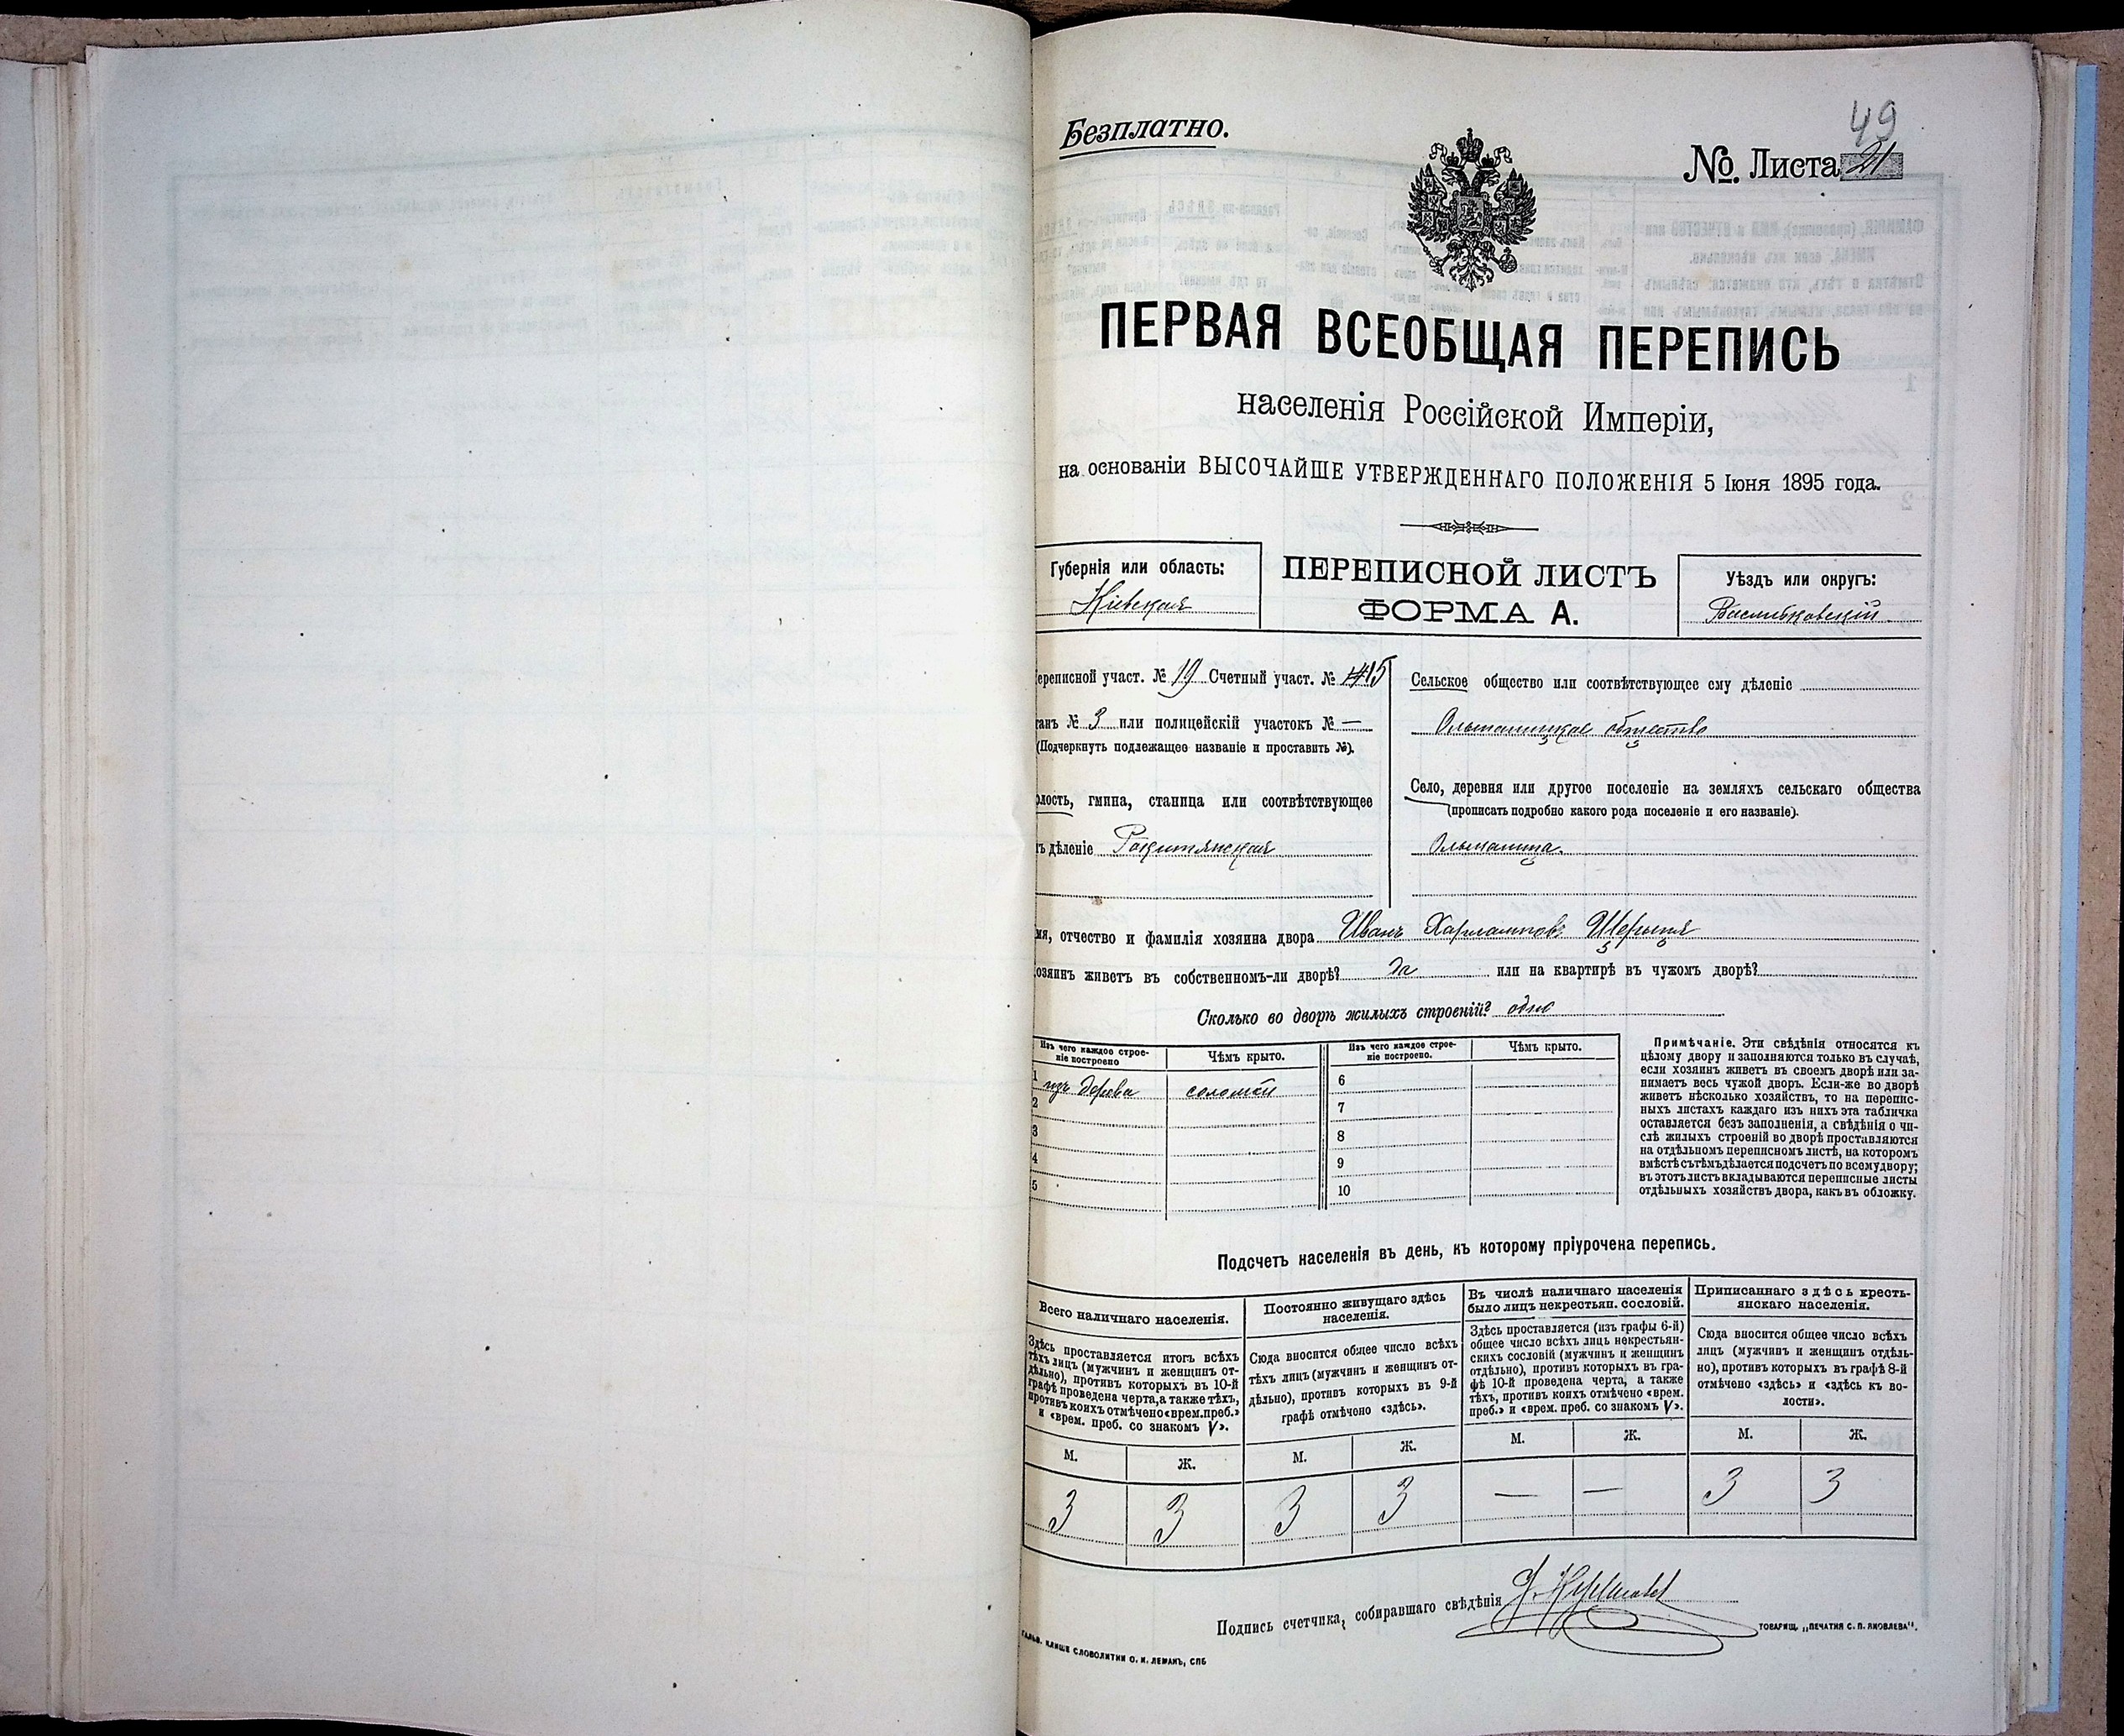 Безплатно.
49
№ Листа 21
ПЕРВАЯ ВСЕОБЩАЯ ПЕРЕПИСЬ
населенія Россійской Имперіи,
на основаніи ВЫСОЧАЙШЕ УТВЕРЖДЕННАГО ПОЛОЖЕНІЯ 5 Іюня 1895 года.
Губернія или область:
Кіевская
ПЕРЕПИСНОЙ ЛИСТЪ
ФОРМА А.
Уѣздъ или округъ:
Васильковскій
ереписной участ. № 19 Счетный участ. № 15
танъ № 3 или полицейскій участокъ № —
(Подчеркнуть подлежащее названіе и проставить №).
олость, гмина, станица или соотвѣтствующее
ъ дѣленіе Рокитянская
Сельское общество или соотвѣтствующее ему дѣленіе
Ольшаницкое общество
Село, деревня или другое поселеніе на земляхъ сельскаго общества
(прописать подробно какого рода поселеніе и его названіе).
Ольшаница.
мя, отчество и фамилія хозяина двора Иванъ Харлампов. Щерица
озяинъ живетъ въ собственномъ-ли дворѣ? Да или на квартирѣ въ чужомъ дворѣ?
Сколько во дворѣ жилыхъ строеній? одно
Изъ чего каждое строе-
ніе построено
Чѣмъ крыто.
Изъ чего каждое строе-
ніе построено.
Чѣмъ крыто.
1 изъ дерева соломой 6
2 7
3 8
4 9
5 10
Примѣчаніе. Эти свѣдѣнія относятся къ
цѣлому двору и заполняются только въ случаѣ,
если хозяинъ живетъ въ своемъ дворѣ или за-
нимаетъ весь чужой дворъ. Если-же во дворѣ
живетъ нѣсколько хозяйствъ, то на перепис-
ныхъ листахъ каждаго изъ нихъ эта табличка
оставляется безъ заполненія, а свѣдѣнія о чи-
слѣ жилыхъ строеній во дворѣ проставляются
на отдѣльномъ переписномъ листѣ, на которомъ
вмѣстѣ съ тѣмъ дѣлается подсчетъ по всему двору;
въ этотъ листъ вкладываются переписные листы
отдѣльныхъ хозяйствъ двора, какъ въ обложку.
Подсчетъ населенія въ день, къ которому пріурочена перепись.
Всего наличнаго населенія.
Здѣсь проставляется итогъ всѣхъ
тѣхъ лицъ (мужчинъ и женщинъ от-
дѣльно), противъ которыхъ въ 10-й
графѣ проведена черта, а также тѣхъ,
противъ коихъ отмѣчено «врем. преб.»
и «врем. преб. со знакомъ V».
Постоянно живущаго здѣсь
населенія.
Сюда вносится общее число всѣхъ
тѣхъ лицъ (мужчинъ и женщинъ от-
дѣльно), противъ которыхъ въ 9-й
графѣ отмѣчено «здѣсь».
Въ числѣ наличнаго населенія
было лицъ некрестьян. сословій.
Здѣсь проставляется (изъ графы 6-й)
общее число всѣхъ лицъ некрестьян-
скихъ сословій (мужчинъ и женщинъ
отдѣльно), противъ которыхъ въ гра-
фѣ 10-й проведена черта, а также
тѣхъ, противъ коихъ отмѣчено «врем.
преб.» и «врем. преб. со знакомъ V».
Приписаннаго здѣсь кресть-
янскаго населенія.
Сюда вносится общее число всѣхъ
лицъ (мужчинъ и женщинъ отдѣль-
но), противъ которыхъ въ графѣ 8-й
отмѣчено «здѣсь» и «здѣсь къ во-
лости».
М. Ж. М. Ж. М. Ж. М. Ж.
3 3 3 3 — — 3 3
Подпись счетчика, собиравшаго свѣдѣнія
ГАЛЬВ. КЛИШЕ СЛОВОЛИТНИ О. И. ЛЕМАНЪ, СПБ
ТОВАРИЩ. „ПЕЧАТНЯ С. П. ЯКОВЛЕВА".